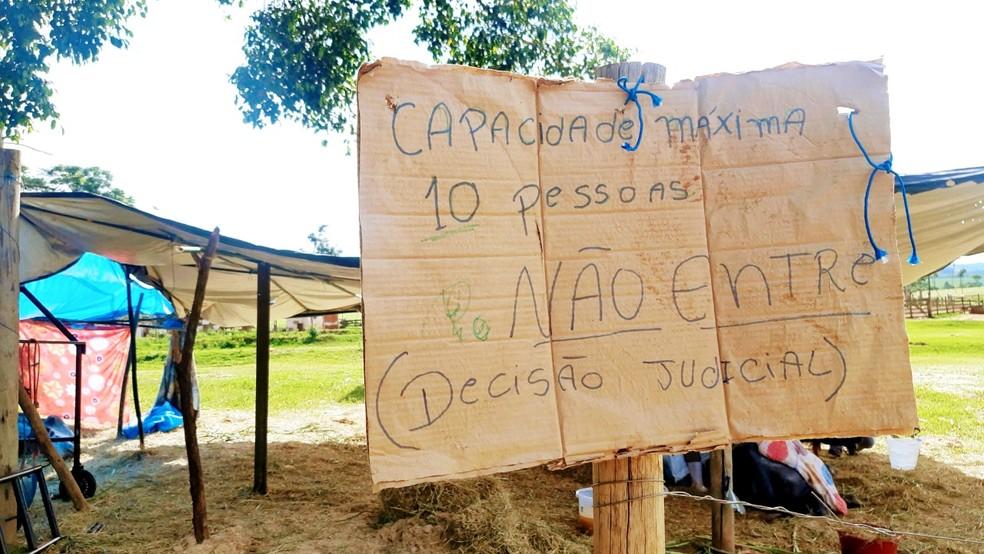 CAPAcidade máxima
10 pessoas
NÃO ENTRE
(Decisão JUDICIAL)